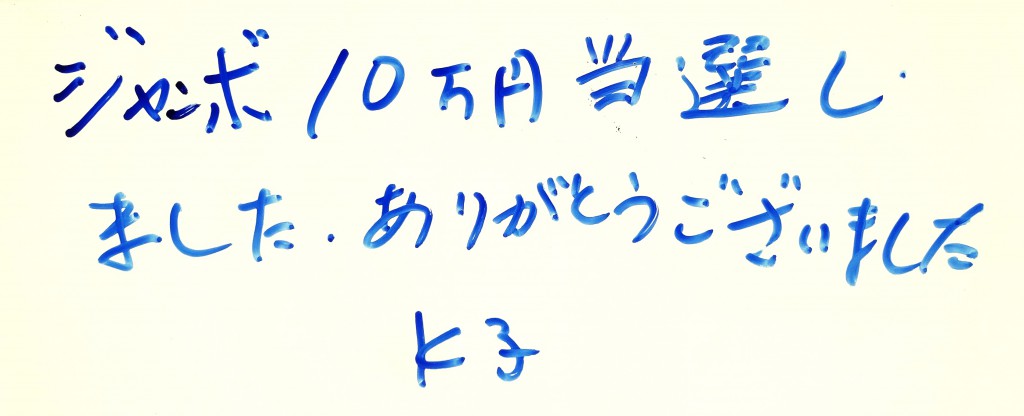 ジャンボ10万円当選し
ました.ありがとうございました
K子